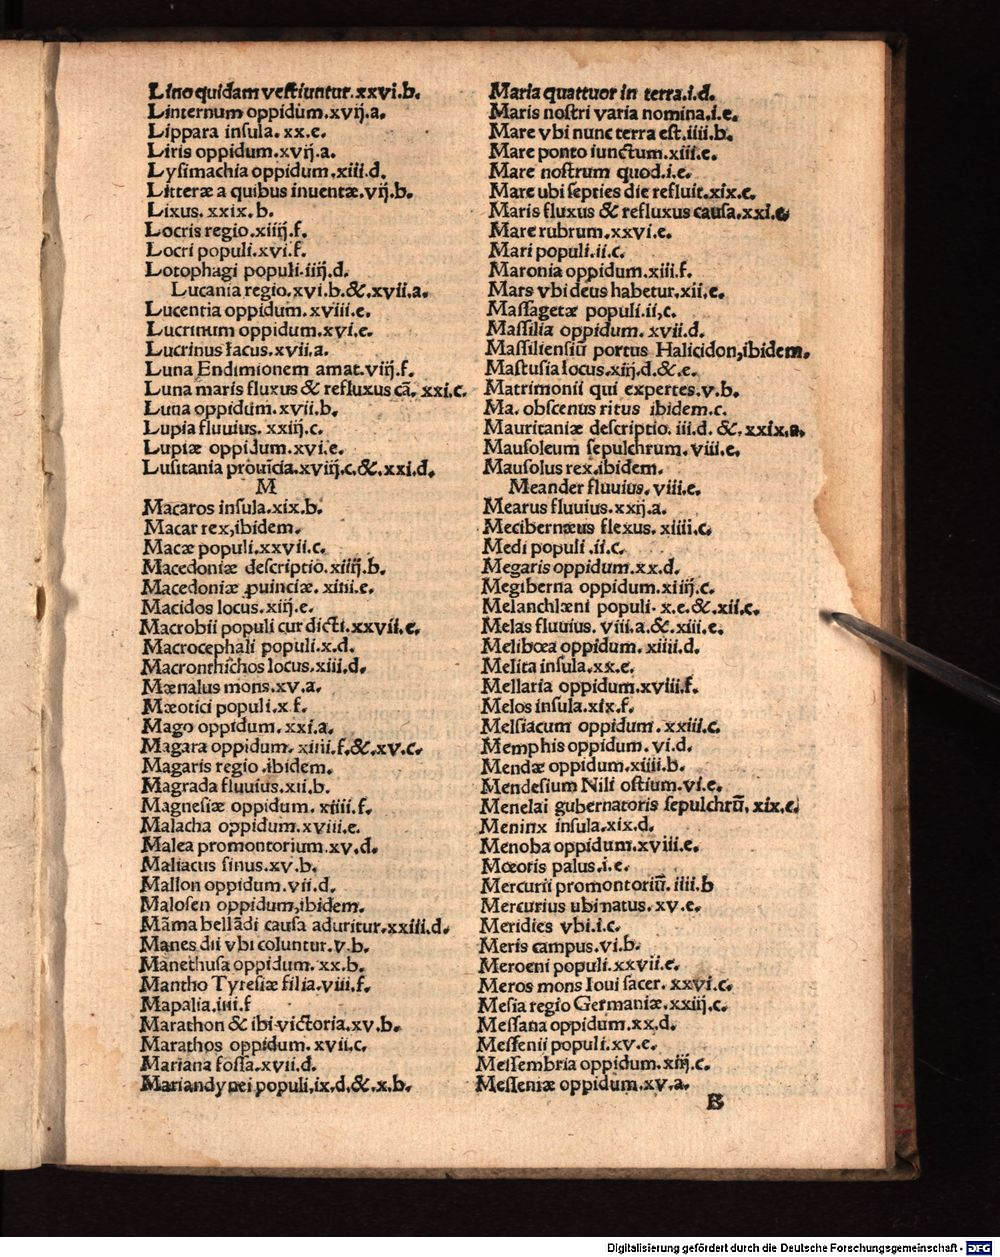 Lino quidam veſtiuntur.xxvi.b.
Linternum oppidum.xvij.a.
Lippara inſula.xx.e.
Liris oppidum.xvij.a.
Lyſimachia oppidum.xiii.d.
Litteræ a quibus inuentæ.vij.b.
Lixus.xxix.b.
Locris regio.xiiij.f.
Locri populi.xvi.f.
Lotophagi populi.iiij.d.
Lucania regio.xvi.b.&.xvii.a.
Lucentia oppidum.xviii.e.
Lucrinum oppidum.xvi.e.
Lucrinus lacus.xvii.a.
Luna Endimionem amat.viij.f.
Luna maris fluxus & refluxus cã.xxi.c.
Luna oppidum.xvii.b.
Lupia fluuius.xxiij.c.
Lupiæ oppidum.xvi.e.
Luſitania prouĩcia.xviij.c.&.xxi.d.
M
Macaros inſula.xix.b.
Macar rex,ibidem.
Macæ populi.xxvii.c.
Macedoniæ deſcriptio.xiiij.b.
Macedoniæ ꝓuinciæ.xiiii.e.
Macidos locus.xiij.e.
Macrobii populi cur dicti.xxvii.e.
Macrocephali populi.x.d.
Macronthichos locus.xiii.d.
Mænalus mons.xv.a.
Mæotici populi.x.f.
Mago oppidum.xxi.a.
Magara oppidum.xiiii.f.&.xv.c.
Magaris regio.ibidem.
Magrada fluuius.xii.b.
Magneſiæ oppidum.xiiii.f.
Malacha oppidum.xviii.e.
Malea promontorium.xv.d.
Maliacus ſinus.xv.b.
Mallon oppidum.vii.d.
Maloſen oppidum,ibidem.
Mãma bellãdi cauſa aduritur.xxiii.d.
Manes dii vbi coluntur.v.b.
Manethuſa oppidum.xx.b.
Mantho Tyreſiæ filia.viii.f.
Mapalia.iiii.f
Marathon & ibi victoria.xv.b.
Marathos oppidum.xvii.c.
Mariana foſſa.xvii.d.
Mariandynei populi,ix.d.&.x.b.
Maria quattuor in terra.i.d.
Maris noſtri varia nomina.i.e.
Mare vbi nunc terra eſt.iiii.b.
Mare ponto iunctum.xiii.e.
Mare noſtrum quod.i.e.
Mare ubi ſepties die refluit.xix.c.
Maris fluxus & refluxus cauſa.xxi.c
Mare rubrum.xxvi.e.
Mari populi.ii.c.
Maronia oppidum.xiii.f.
Mars vbi deus habetur.xii.e.
Maſſagetæ populi.ii,c.
Maſſilia oppidum.xvii.d.
Maſſilienſiũ portus Halicidon,ibidem.
Maſtuſia locus.xiij.d.&.e.
Matrimonii qui expertes.v.b.
Ma. obſcenus ritus ibidem.c.
Mauritaniæ deſcriptio.iii.d.&.xxix.a.
Mauſoleum ſepulchrum.viii.e.
Mauſolus rex.ibidem.
Meander fluuius.viii.e.
Mearus fluuius.xxij.a.
Mecibernæus flexus.xiiii.c.
Medi populi.ii.c.
Megaris oppidum.xx.d.
Megiberna oppidum.xiiij.c.
Melanchlæni populi.x.e.&.xii.c.
Melas fluuius.viii.a.&.xiii.e.
Melibœa oppidum.xiiii.d.
Melita inſula.xx.e.
Mellaria oppidum.xviii.f.
Melos inſula.xix.f.
Melſiacum oppidum.xxiii.c.
Memphis oppidum.vi.d.
Mendæ oppidum.xiiii.b.
Mendeſium Nili oſtium.vi.e.
Menelai gubernatoris ſepulchrũ.xix.e.
Meninx inſula.xix.d.
Menoba oppidum.xviii.e.
Mœoris palus.i.e.
Mercurii promontoriũ.iiii.b
Mercurius ubi natus.xv.e.
Meridies vbi.i.c.
Meris campus.vi.b.
Meroeni populi.xxvii.e.
Meros mons Ioui ſacer.xxvi.c.
Meſia regio Germaniæ.xxiij.c.
Meſſana oppidum.xx.d.
Meſſenii populi.xv.e.
Meſſembria oppidum.xiij.c.
Meſſeniæ oppidum.xv.a.
B
Digitalisierung gefördert durch die Deutsche Forschungsgemeinschaft - DFG